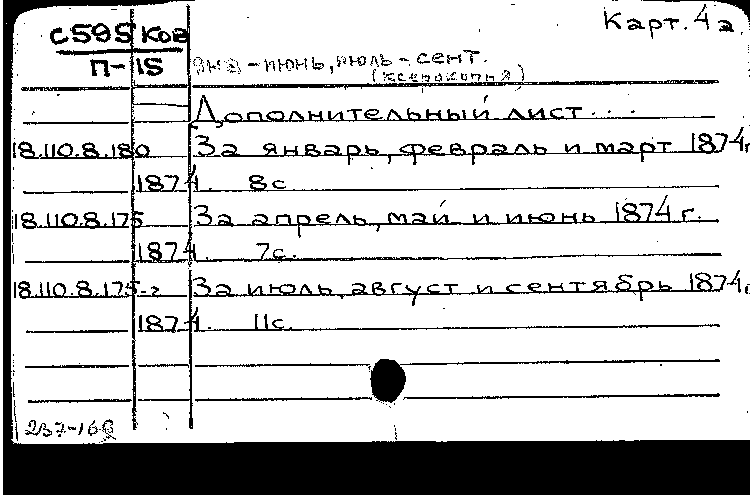 Карт. 4а
с595 Ков
П-15 янв-июнь, июль-сент.
(ксерокопия)
Дополнительный лист...
18.110.8.180 За январь, февраль и март 1874г.
1874. 8с
18.110.8.175 За апрель, май и июнь 1874г.
1874. 7с.
18.110.8.175-г За июль, август и сентябрь 1874г.
1874. 11с.